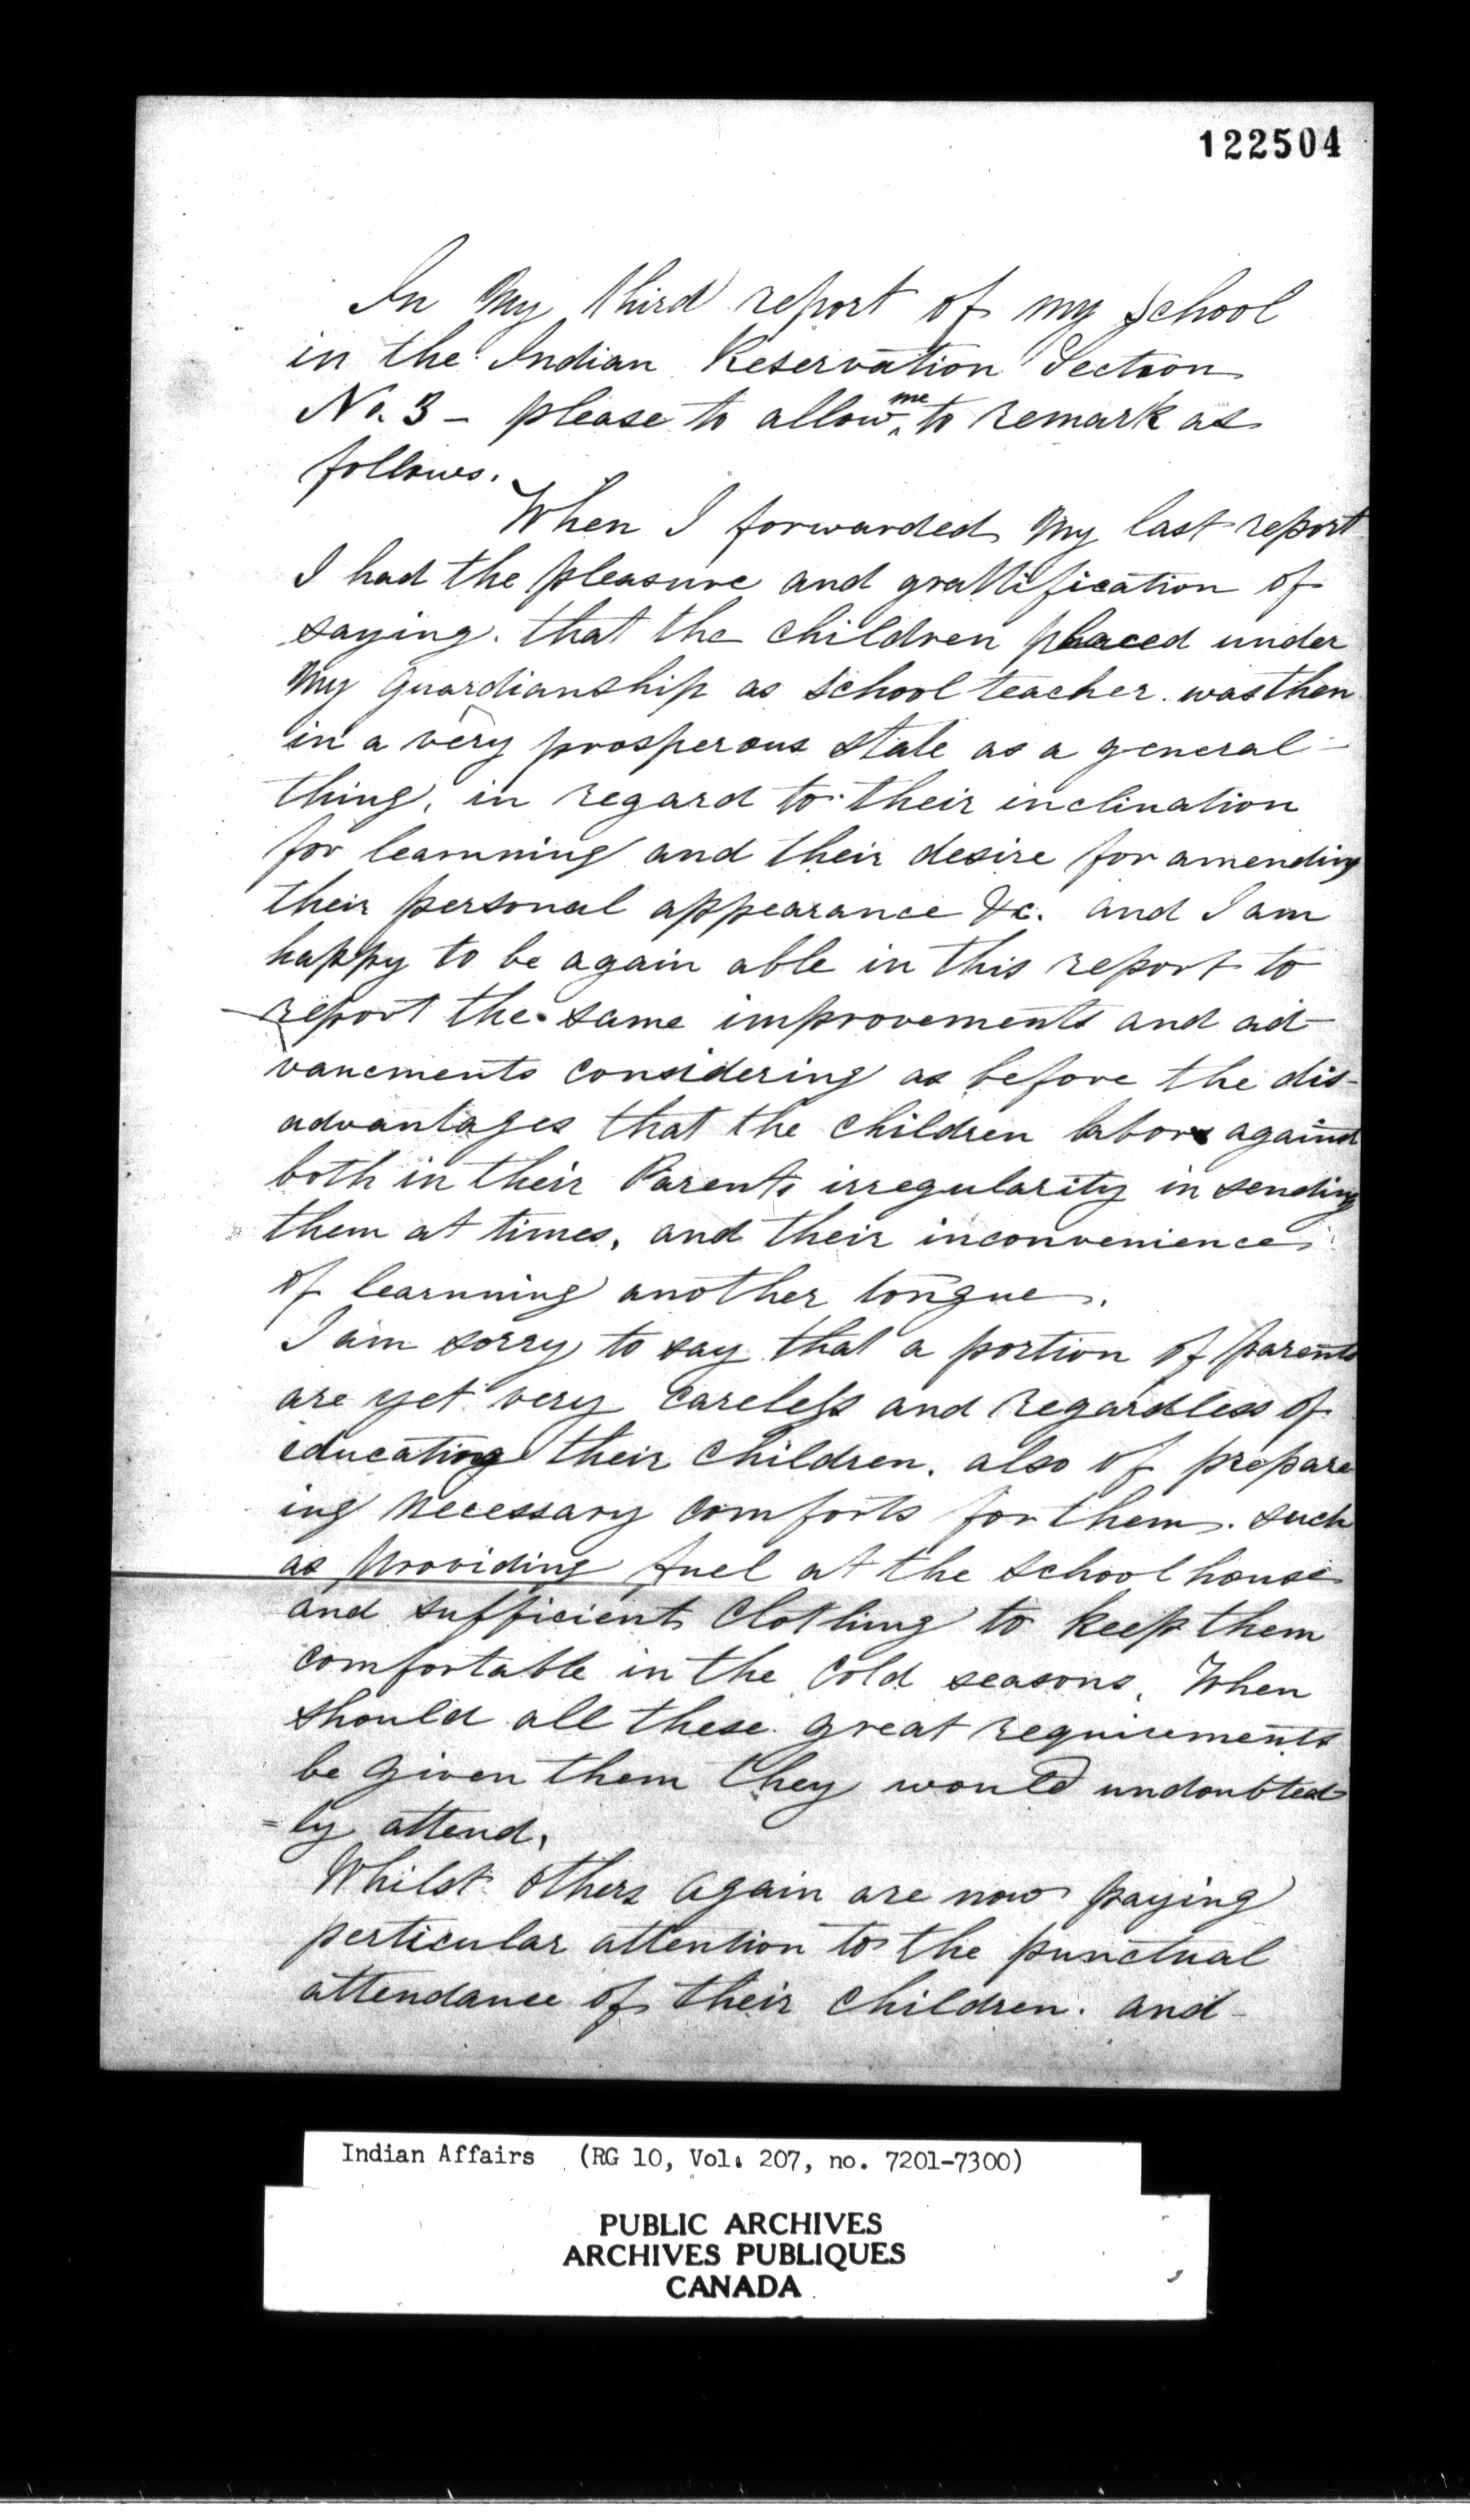 122504
In My third report of my School
in the Indian Reservation Section
No. 3 - please to allow me to remark as
follows.
When I forwarded My last report
I had the pleasure and grattification of
saying. that the children placed under
My Guardianship as School teacher. was then
in a very prosperous state as a general
thing, in regard to their inclination
for learnning and their desire for amending
their personal appearance &c. and I am
happy to be again able in this report to
report the same improvements and ad-
vancments considering as before the dis-
advantages that the children labor against
both in their Parents irregularity in sending
them at times, and their inconvenience
of learnning another tongue.
I am sorry to say that a portion of parents
are yet very careless and regardless of
educating their children. also of prepare
ing necessary comforts for them. such
as providing fuel at the School house
and sufficient Clothing to keep them
comfortable in the cold seasons. When
should all these great requirements
be given them they would undoubted
=ly attend.
Whilst others again are now paying
perticular attention to the punctual
attendance of their children. and
Indian Affairs (RG 10, Vol. 207, no. 7201-7300)
PUBLIC ARCHIVES
ARCHIVES PUBLIQUES
CANADA